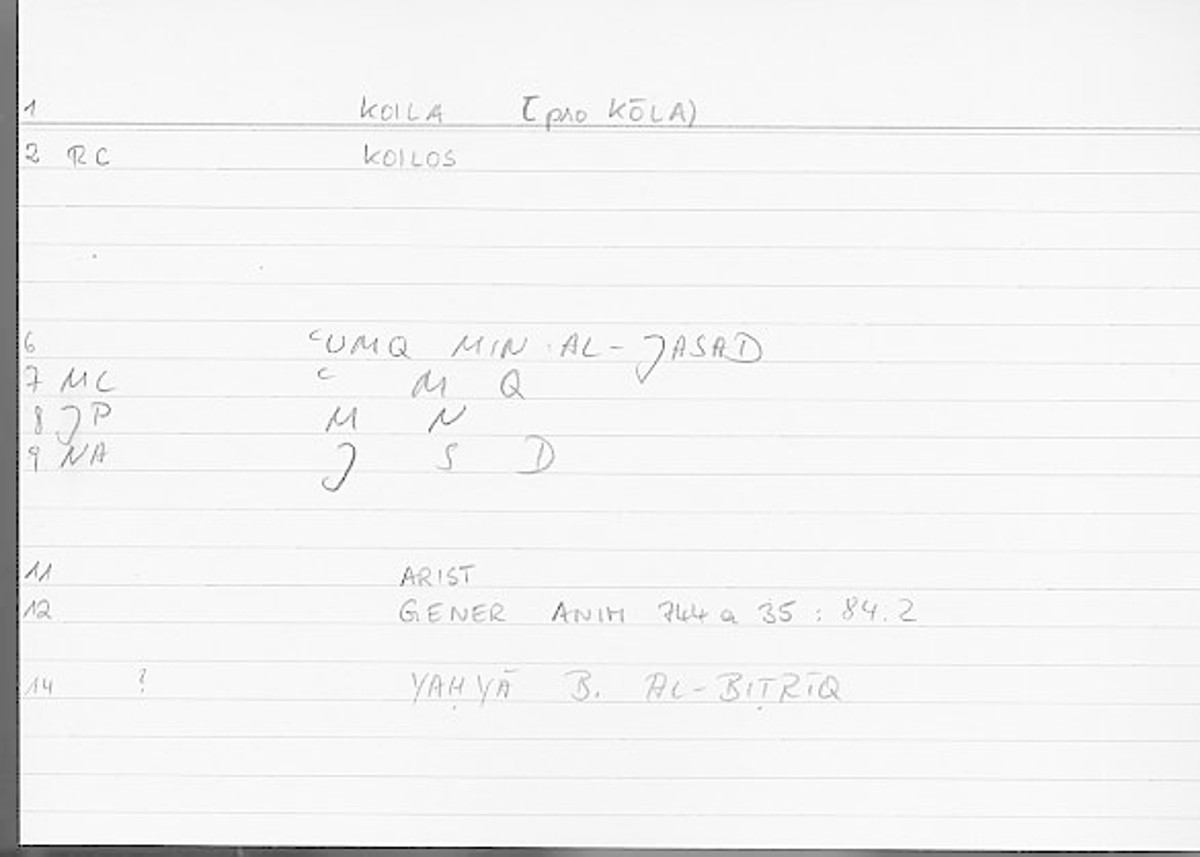 1 KOILA [pro KŌLA)
2 RC KOILOS
6 ʿUMQ MIN AL-JASAD
7 MC ʿ M Q
8 JP M N
9 NA J S D
11 ARIST
12 GENER ANIM 744 a 35 : 84.2
14 ? YAḤYĀ B. AL-BIṬRĪQ